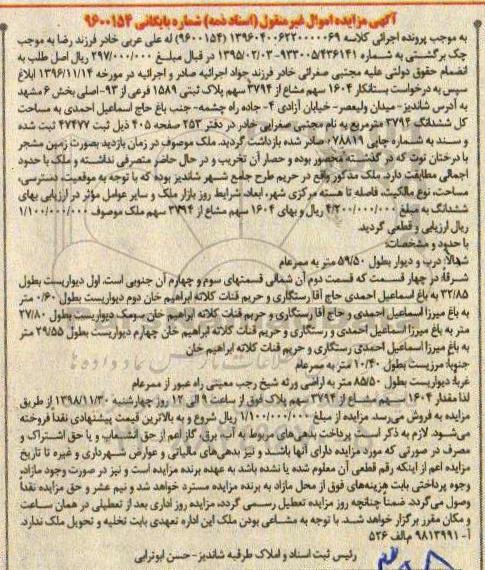 آگهی مزایده اموال غیرمنقول (اسناد ذمه) شماره بایگانی ۹۶۰۰۱۵۴
به موجب پرونده اجرائی کلاسه ۱۳۹۶۰۴۰۶۲۲۰۰۰۰۰۶۹ (۹۶۰۰۱۵۴) له علی عربی خادر فرزند رضا به موجب
چک برگشتی به شماره ۹۳۳۰۰۵/۴۳۶۱۴۱-۱۳۹۵/۰۲/۰۳ در قبال مبلغ ۲۹۷/۰۰۰/۰۰۰ ریال اصل طلب به
انضمام حقوق دولتی علیه مجتبی صفرائی خادر فرزند جواد اجرائیه صادر و اجرائیه در مورخه ۱۳۹۶/۱۱/۱۴ ابلاغ
سپس به درخواست بستانکار ۱۶۰۴ سهم مشاع از ۳۷۹۴ سهم پلاک ثبتی ۱۵۸۹ فرعی از ۹۳-اصلی بخش ۶ مشهد
به آدرس شاندیز-میدان ولیعصر- خیابان آزادی ۴- جاده راه چشمه- جنب باغ حاج اسماعیل احمدی به مساحت
کل ششدانگ ۳۷۹۴ مترمربع به نام مجتبی صفرایی خادر در دفتر ۲۵۳ صفحه ۴۰۵ ذیل ثبت ۴۷۴۷۷ ثبت شده
و سند به شماره چاپی ۰۷۸۸۱۹ صادر شده بازداشت گردید. ملک موصوف در زمان بازدید بصورت زمین مشجر
با درختان توت که در گذشته محصور بوده و حصار آن تخریب و در حال حاضر متصرفی نداشته و ملک با حدود
اجمالی مطابقت دارد. ملک مذکور واقع در حریم طرح جامع شهر شاندیز بوده که با توجه به موقعیت، دسترسی،
مساحت، نوع مالکیت، فاصله تا هسته مرکزی شهر، ابعاد، شرایط روز بازار ملک و سایر عوامل مؤثر در ارزیابی بهای
ششدانگ به مبلغ ۴/۲۰۰/۰۰۰/۰۰۰ ریال و بهای ۱۶۰۴ سهم مشاع از ۳۷۹۴ سهم ملک موصوف ۱/۱۰۰/۰۰۰/۰۰۰
ریال ارزیابی و قطعی گردید.
با حدود و مشخصات:
شمالاً: درب و دیوار بطول ۵۹/۵۰ متر به ممرعام
شرقاً: در چهار قسمت که قسمت دوم آن شمالی قسمتهای سوم و چهارم آن جنوبی است. اول دیواریست بطول
۳۲/۸۵ به باغ اسماعیل احمدی حاج آقا رستگاری و حریم قنات کلاته ابراهیم خان دوم دیواریست بطول ۰/۶۰ متر
به باغ میرزا اسماعیل احمدی و حاج آقا رستگاری و حریم قنات کلاته ابراهیم خان سومک دیواریست بطول ۲۷/۸۰
متر به باغ میرزا اسماعیل احمدی و رستگاری و حریم قنات کلاته ابراهیم خان چهارم دیواریست بطول ۲۹/۵۵ متر
به باغ میرزا اسماعیل احمدی رستگاری و حریم قنات کلاته ابراهیم خان
جنوباً: مرزیست بطول ۱۰/۴۰ متر به ممرعام
غرباً: دیواریست بطول ۸۵/۵۰ متر به اراضی ورثه شیخ رجب معینی راه عبور از ممرعام
لذا مقدار ۱۶۰۴ سهم مشاع از ۳۷۹۴ سهم پلاک فوق از ساعت ۹ الی ۱۲ روز چهارشنبه ۱۳۹۸/۱۱/۳۰ از طریق
مزایده به فروش می‌رسد. مزایده از مبلغ ۱/۱۰۰/۰۰۰/۰۰۰ ریال شروع و به بالاترین قیمت پیشنهادی نقداً فروخته
می‌شود. لازم به ذکر است پرداخت بدهی‌های مربوط به آب، برق، گاز اعم از حق انشعاب و یا حق اشتراک و
مصرف در صورتی که مورد مزایده دارای آنها باشد و نیز بدهی‌های مالیاتی و عوارض شهرداری و غیره تا تاریخ
مزایده اعم از اینکه رقم قطعی آن معلوم شده یا نشده باشد به عهده برنده مزایده است و نیز در صورت وجود مازاد،
وجوه پرداختی بابت هزینه‌های فوق از محل مازاد به برنده مزایده مسترد خواهد شد و نیم عشر و حق مزایده نقداً
وصول می‌گردد. ضمناً چنانچه روز مزایده تعطیل رسمی گردد، مزایده روز اداری بعد از تعطیلی در همان ساعت
و مکان مقرر برگزار خواهد شد. با توجه به مشاعی بودن ملک این اداره تعهدی بابت تخلیه و تحویل ملک ندارد.
آ- ۹۸۱۳۹۹۱ م‌الف ۵۲۶
رئیس ثبت اسناد و املاک طرقبه شاندیز-حسن ابوترابی